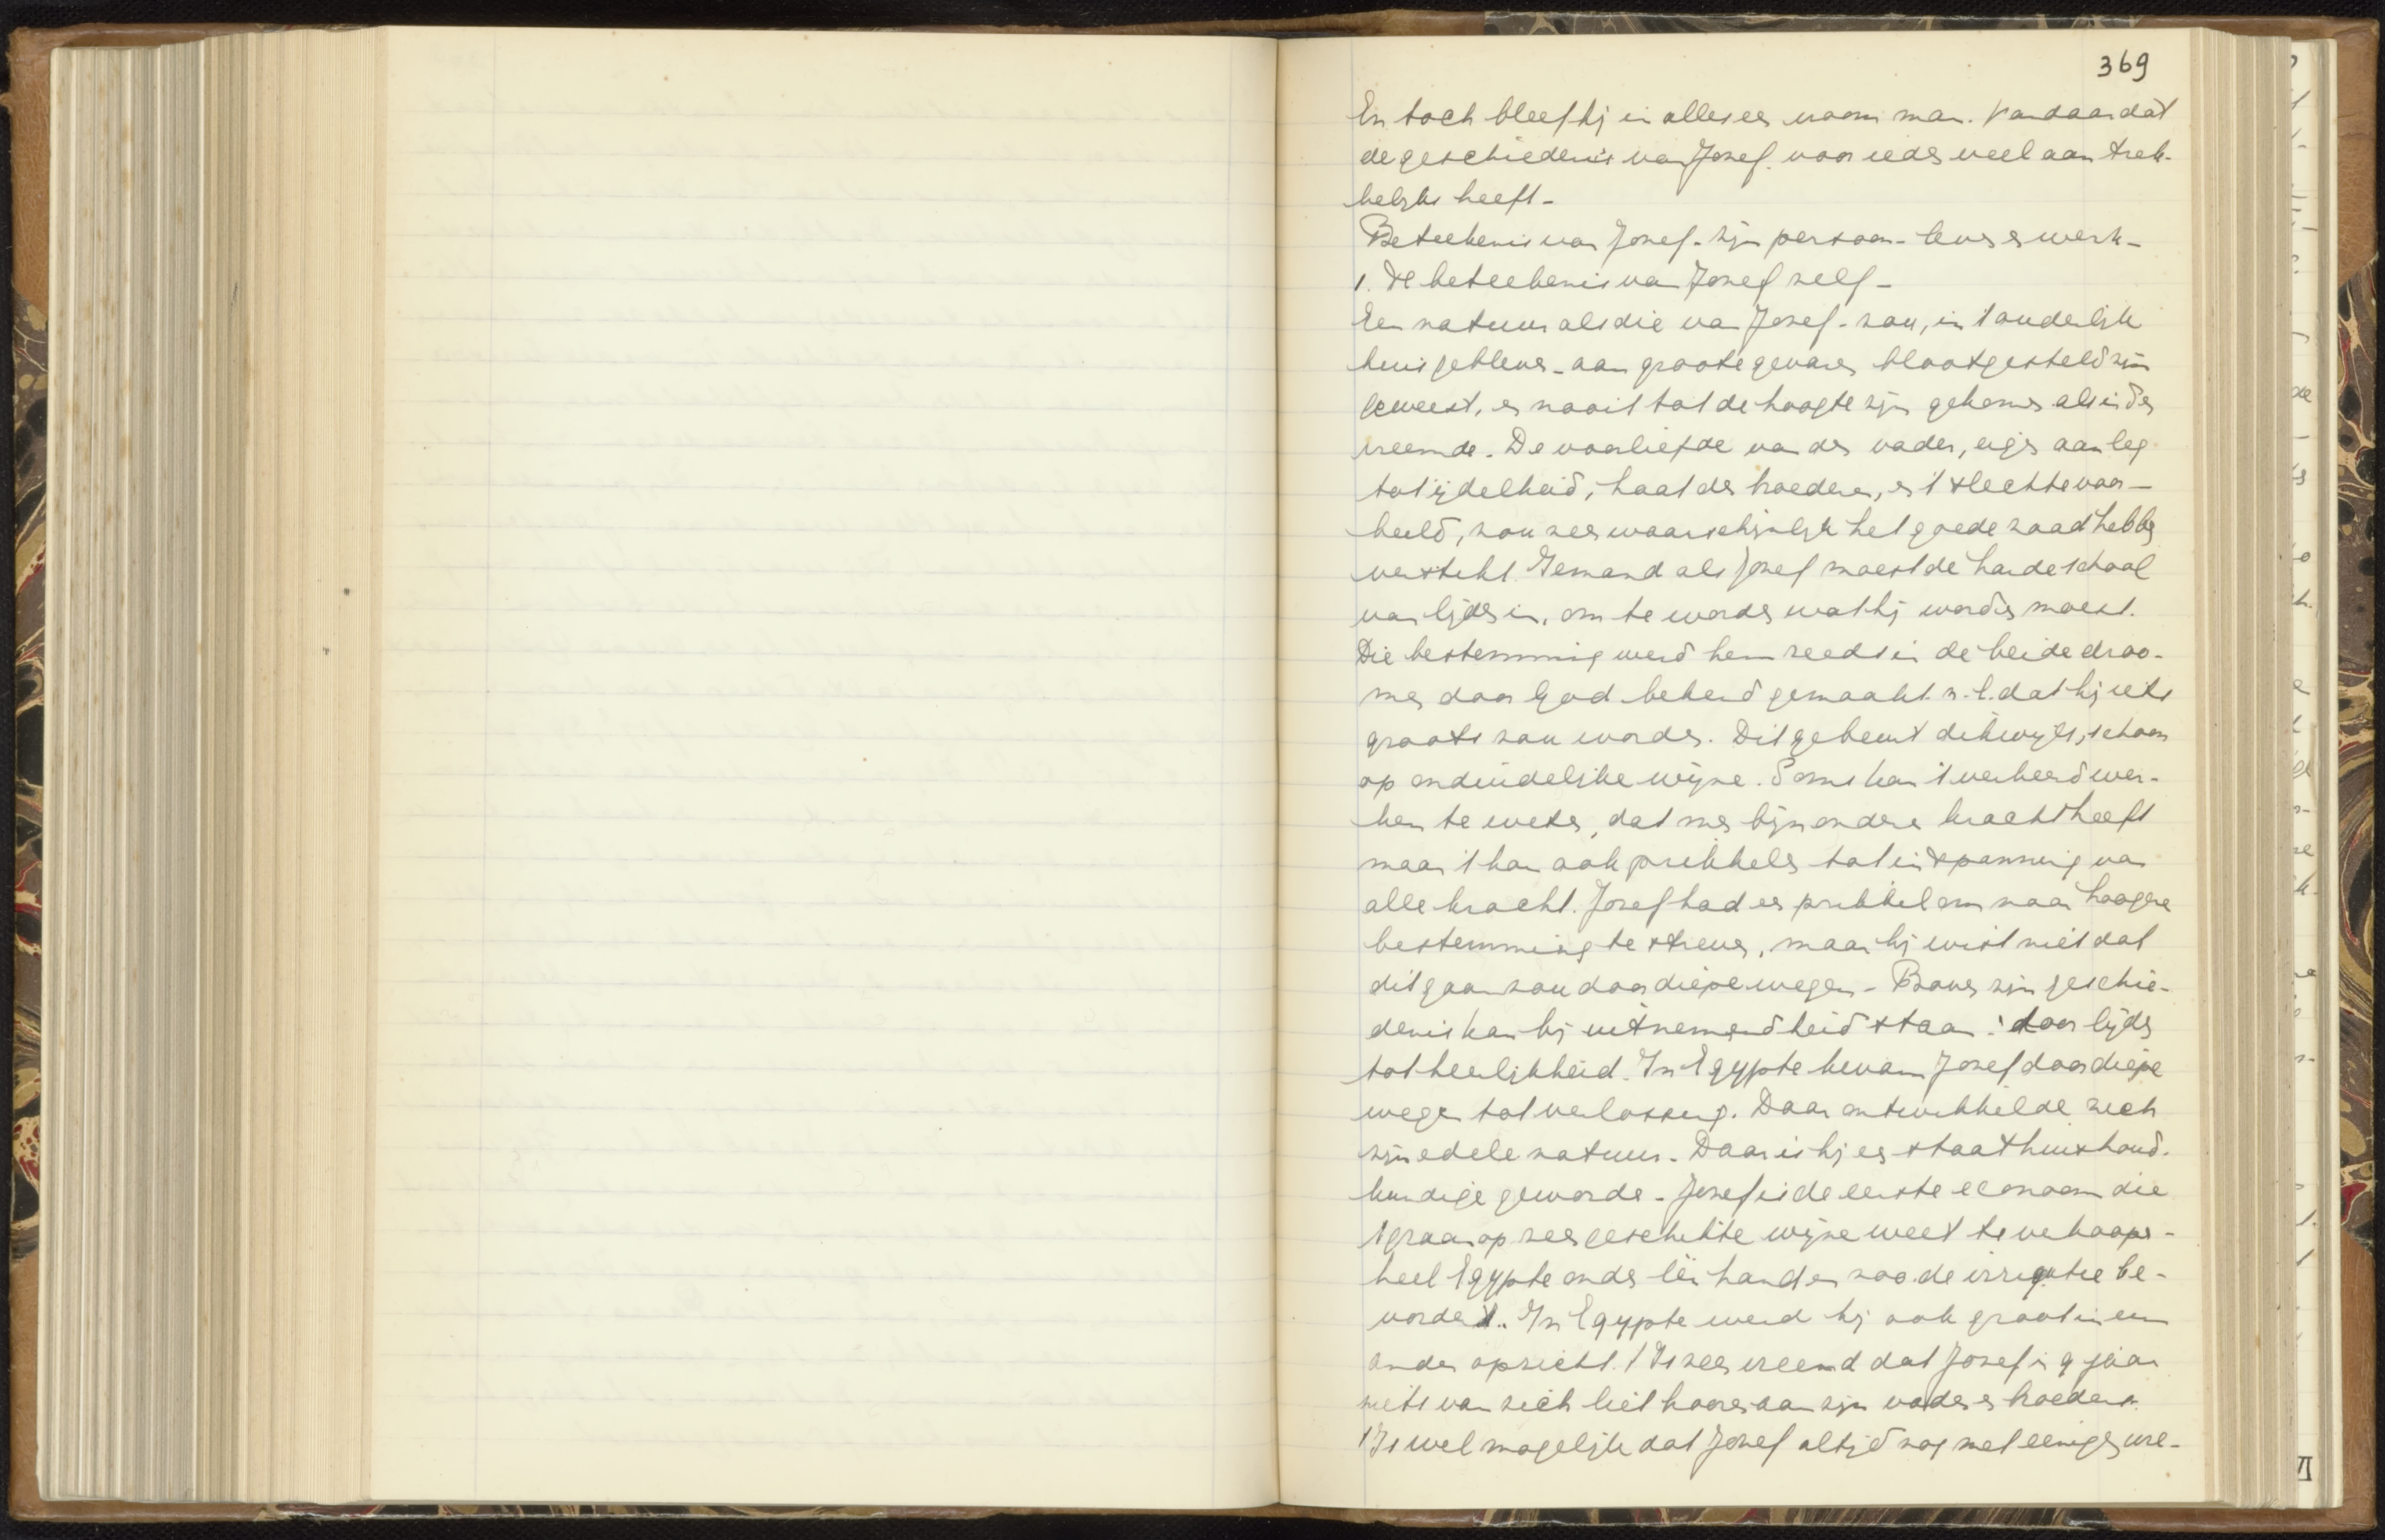 369
En toch bleef hij in alles een vroom man. Vandaar dat
de geschiedenis van Jozef. voor ieder veel aantrek-
kelijks heeft -
Beteekenis van Jozef - zijn persoon - leven en werk -
1. De beteekenis van Jozef zelf -
Een natuur als die van Jozef - zou, in 't ouderlijk
huis gebleven - aan groote gevaren blootgesteld zijn
geweest, en nooit tot de hoogte zijn gekomen als in den
vreemde. De voorliefde van den vader, eigen aanleg
tot ijdelheid, haat der broederen, en 't slechte voor-
beeld, zou zeer waarschijnlijk het goede zaad hebben
verstikt. Iemand als Jozef moest de harde school
van lijden in, om te worden wat hij worden moest.
Die bestemming werd hem reeds in de beide droo-
men door God bekend gemaakt. n.l. dat hij iets
groots zou worden. Dit gebeurt dikwijls, schoon
op onduidelijke wijze. Soms kan 't verkeerd wer-
ken te weten, dat men bijzondere kracht heeft
maar 't kan ook prikkelen tot inspanning van
alle kracht. Jozef had een prikkel om naar hoogere
bestemming te streven, maar hij wist niet dat
dit gaan zou door diepe wegen - Boven zijn geschie-
denis kan bij uitnemendheid staan: door lijden
tot heerlijkheid. In Egypte kwam Jozef door diepe
wegen tot verlossing. Daar ontwikkelde zich
zijn edele natuur. Daar is hij een staathuishoud-
kundige geworden - Jozef is de eerste econoom die
't graan op zeer geschikte wijze weet te verkoopen -
heel Egypte onder léén handen zoo de irrigatie be-
vordert. In Egypte werd hij ook groot in een
ander opzicht. 't Is zeer vreemd dat Jozef in 9 jaar
niets van zich liet hooren aan zijn vader en broeders.
't Is wel mogelijk dat Jozef altijd nog met eenigen wre-